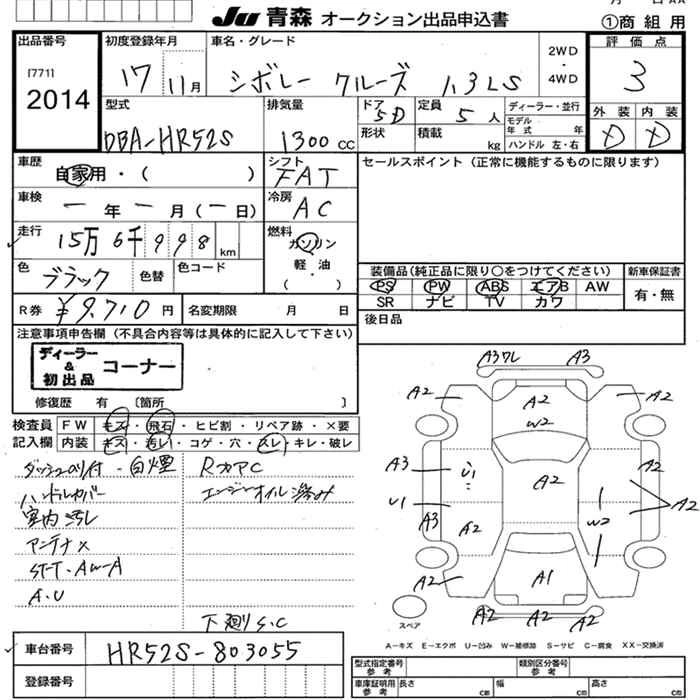 JU 青森 オークション出品申込書
①商組用
出品番号
[771]
2014
初度登録年月
17 11月
車名・グレード
シボレー クルーズ 1.3LS
2WD
・
4WD
評価点
3
型式
DBA-HR52S
排気量
1300 CC
ドア 5D
定員 5 人
形状
積載 kg
ディーラー・並行
モデル年式 年
ハンドル 左・右
外装 内装
D D
車歴
自家用・( )
シフト
FAT
セールスポイント (正常に機能するものに限ります)
車検
一年一月(一日)
冷房
AC
走行
15万6千998km
燃料
ガソリン
軽・油
( )
色
ブラック
色替
色コード
装備品(純正品に限り○をつけてください)
新車保証書
PS PW ABS エアB AW
SR ナビ TV カワ
有・無
R券 ¥9,710円
名変期限 月 日
後日品
注意事項申告欄 (不具合内容等は具体的に記入して下さい)
ディーラー
&
初出品
コーナー
修復歴 有 〔箇所 〕
検査員
記入欄
FW キズ・飛石・ヒビ割・リペア跡・×要
内装 キズ・汚レ・コゲ・穴・スレ・キレ・破レ
ダッシュハリ付・白煙
ハンドルカバー
室内汚レ
アンテナ×
ST-T・AW-A
A.U
RカアC
エンジンオイル滲み
下廻りS.C
A3ワレ A3
A2 A2
A2
W2
A3 U1 A2 A2
U1 A3 A2 W2 A2
A2 A1
A2 A2 A2
スペア
A-キズ E-エクボ U-凹み W-補修跡 S-サビ C-腐食 XX-交換済
車台番号
HR52S-803055
登録番号
型式指定番号
参考
類別区分番号
参考
車庫証明用
参考
長さ cm
幅 cm
高さ cm